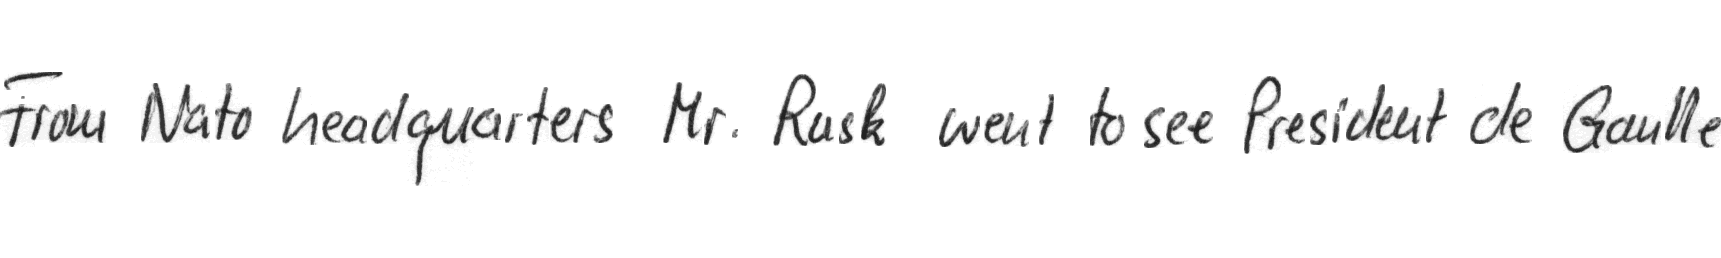 From Nato headquarters Mr. Rusk went to see President de Gaulle